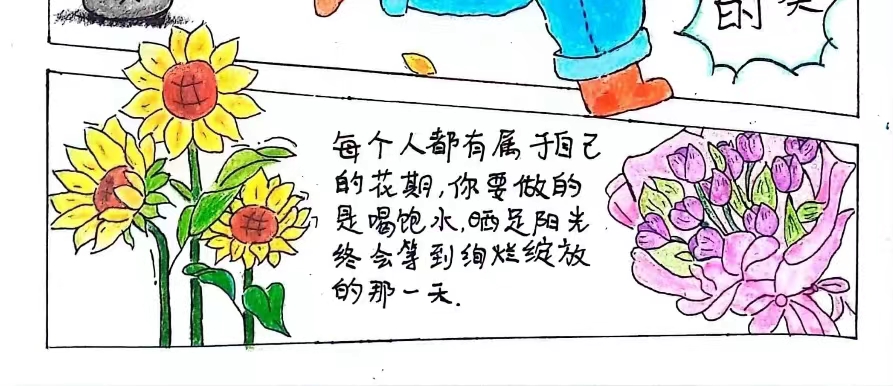 的
每个人都有属于自己
的花期,你要做的
是喝饱水,晒足阳光
终会等到绚烂绽放
的那一天.